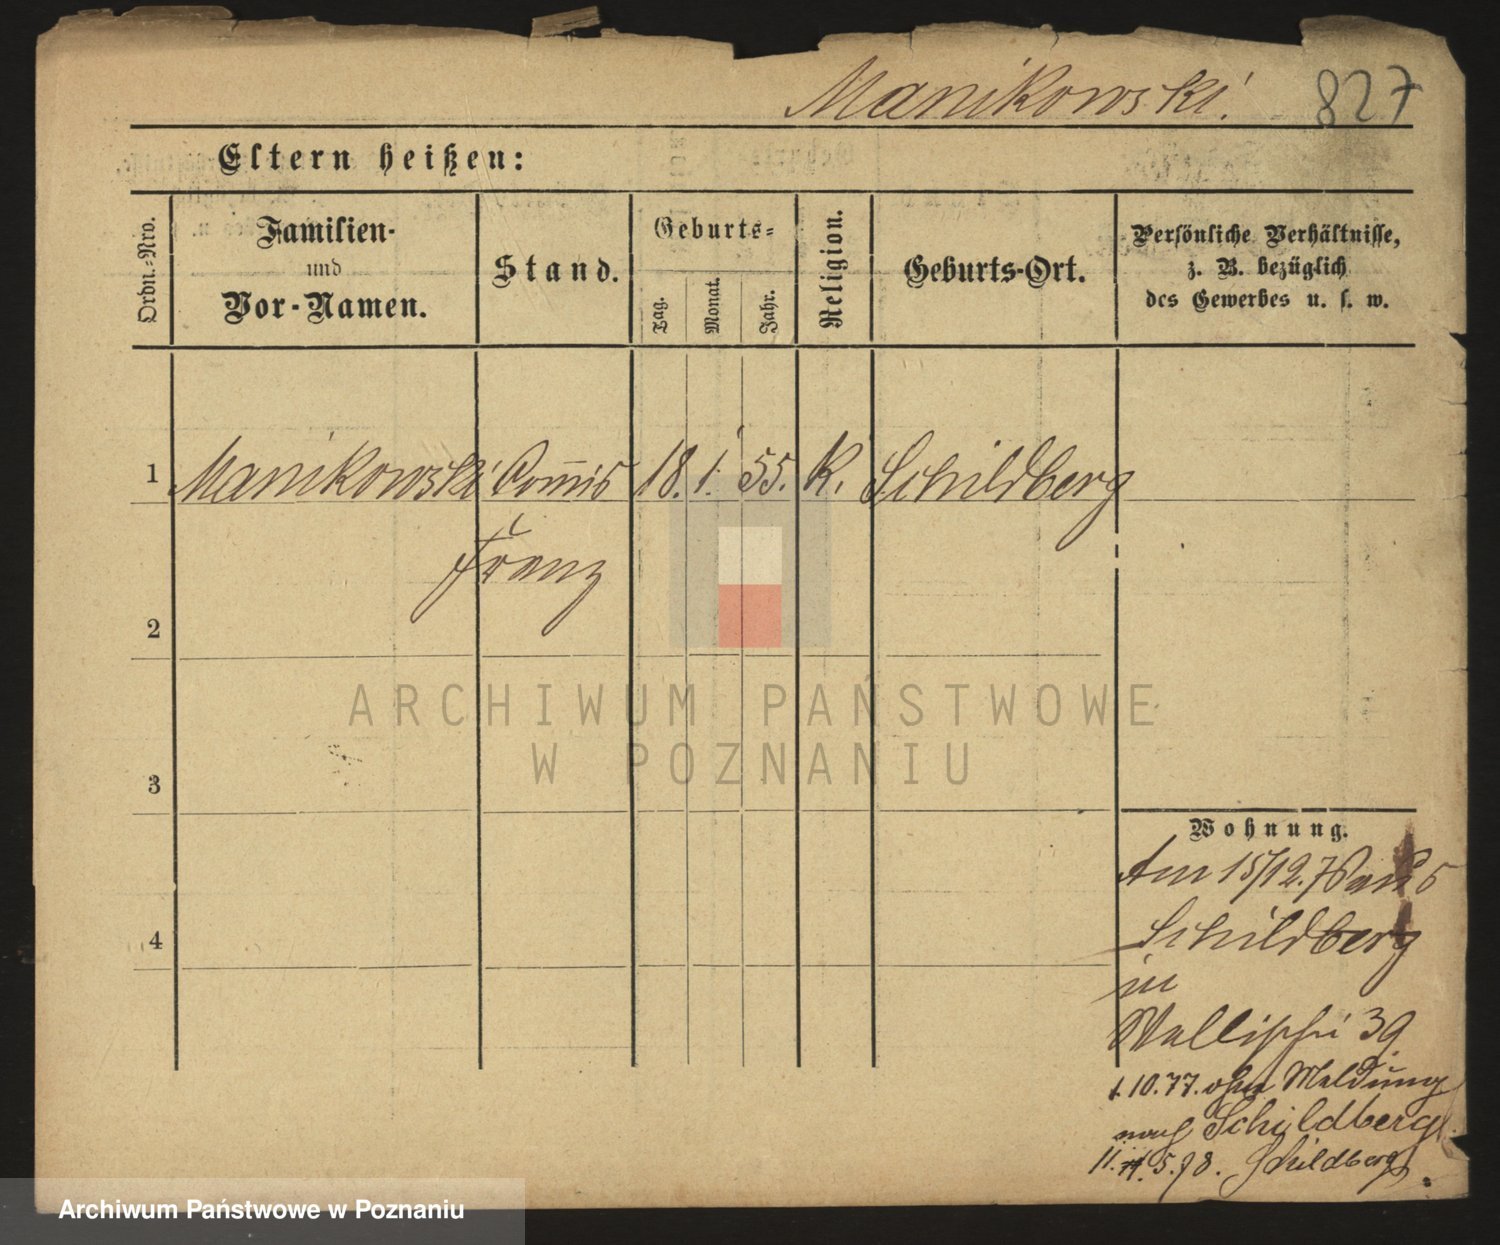 Manikowski. 827
Eltern heißen:
Ordn.-Nro.
Familien-
und
Vor-Namen.
Stand.
Geburts-
Tag.
Monat.
Jahr.
Religion.
Geburts-Ort.
Persönliche Verhältnisse,
z. B. bezüglich
des Gewerbes u. s. w.
1 Manikowski Com̅is 18. 1. 55. K. Schildberg
Franz
2
3
4
Wohnung.
Am 15/12.76 aus
Schildberg
in
Wallischei 39
1.10.77. ohne Meldung
nach Schildberg.
11. 5. 78. Schildberg
ARCHIWUM PAŃSTWOWE
W POZNANIU
Archiwum Państwowe w Poznaniu